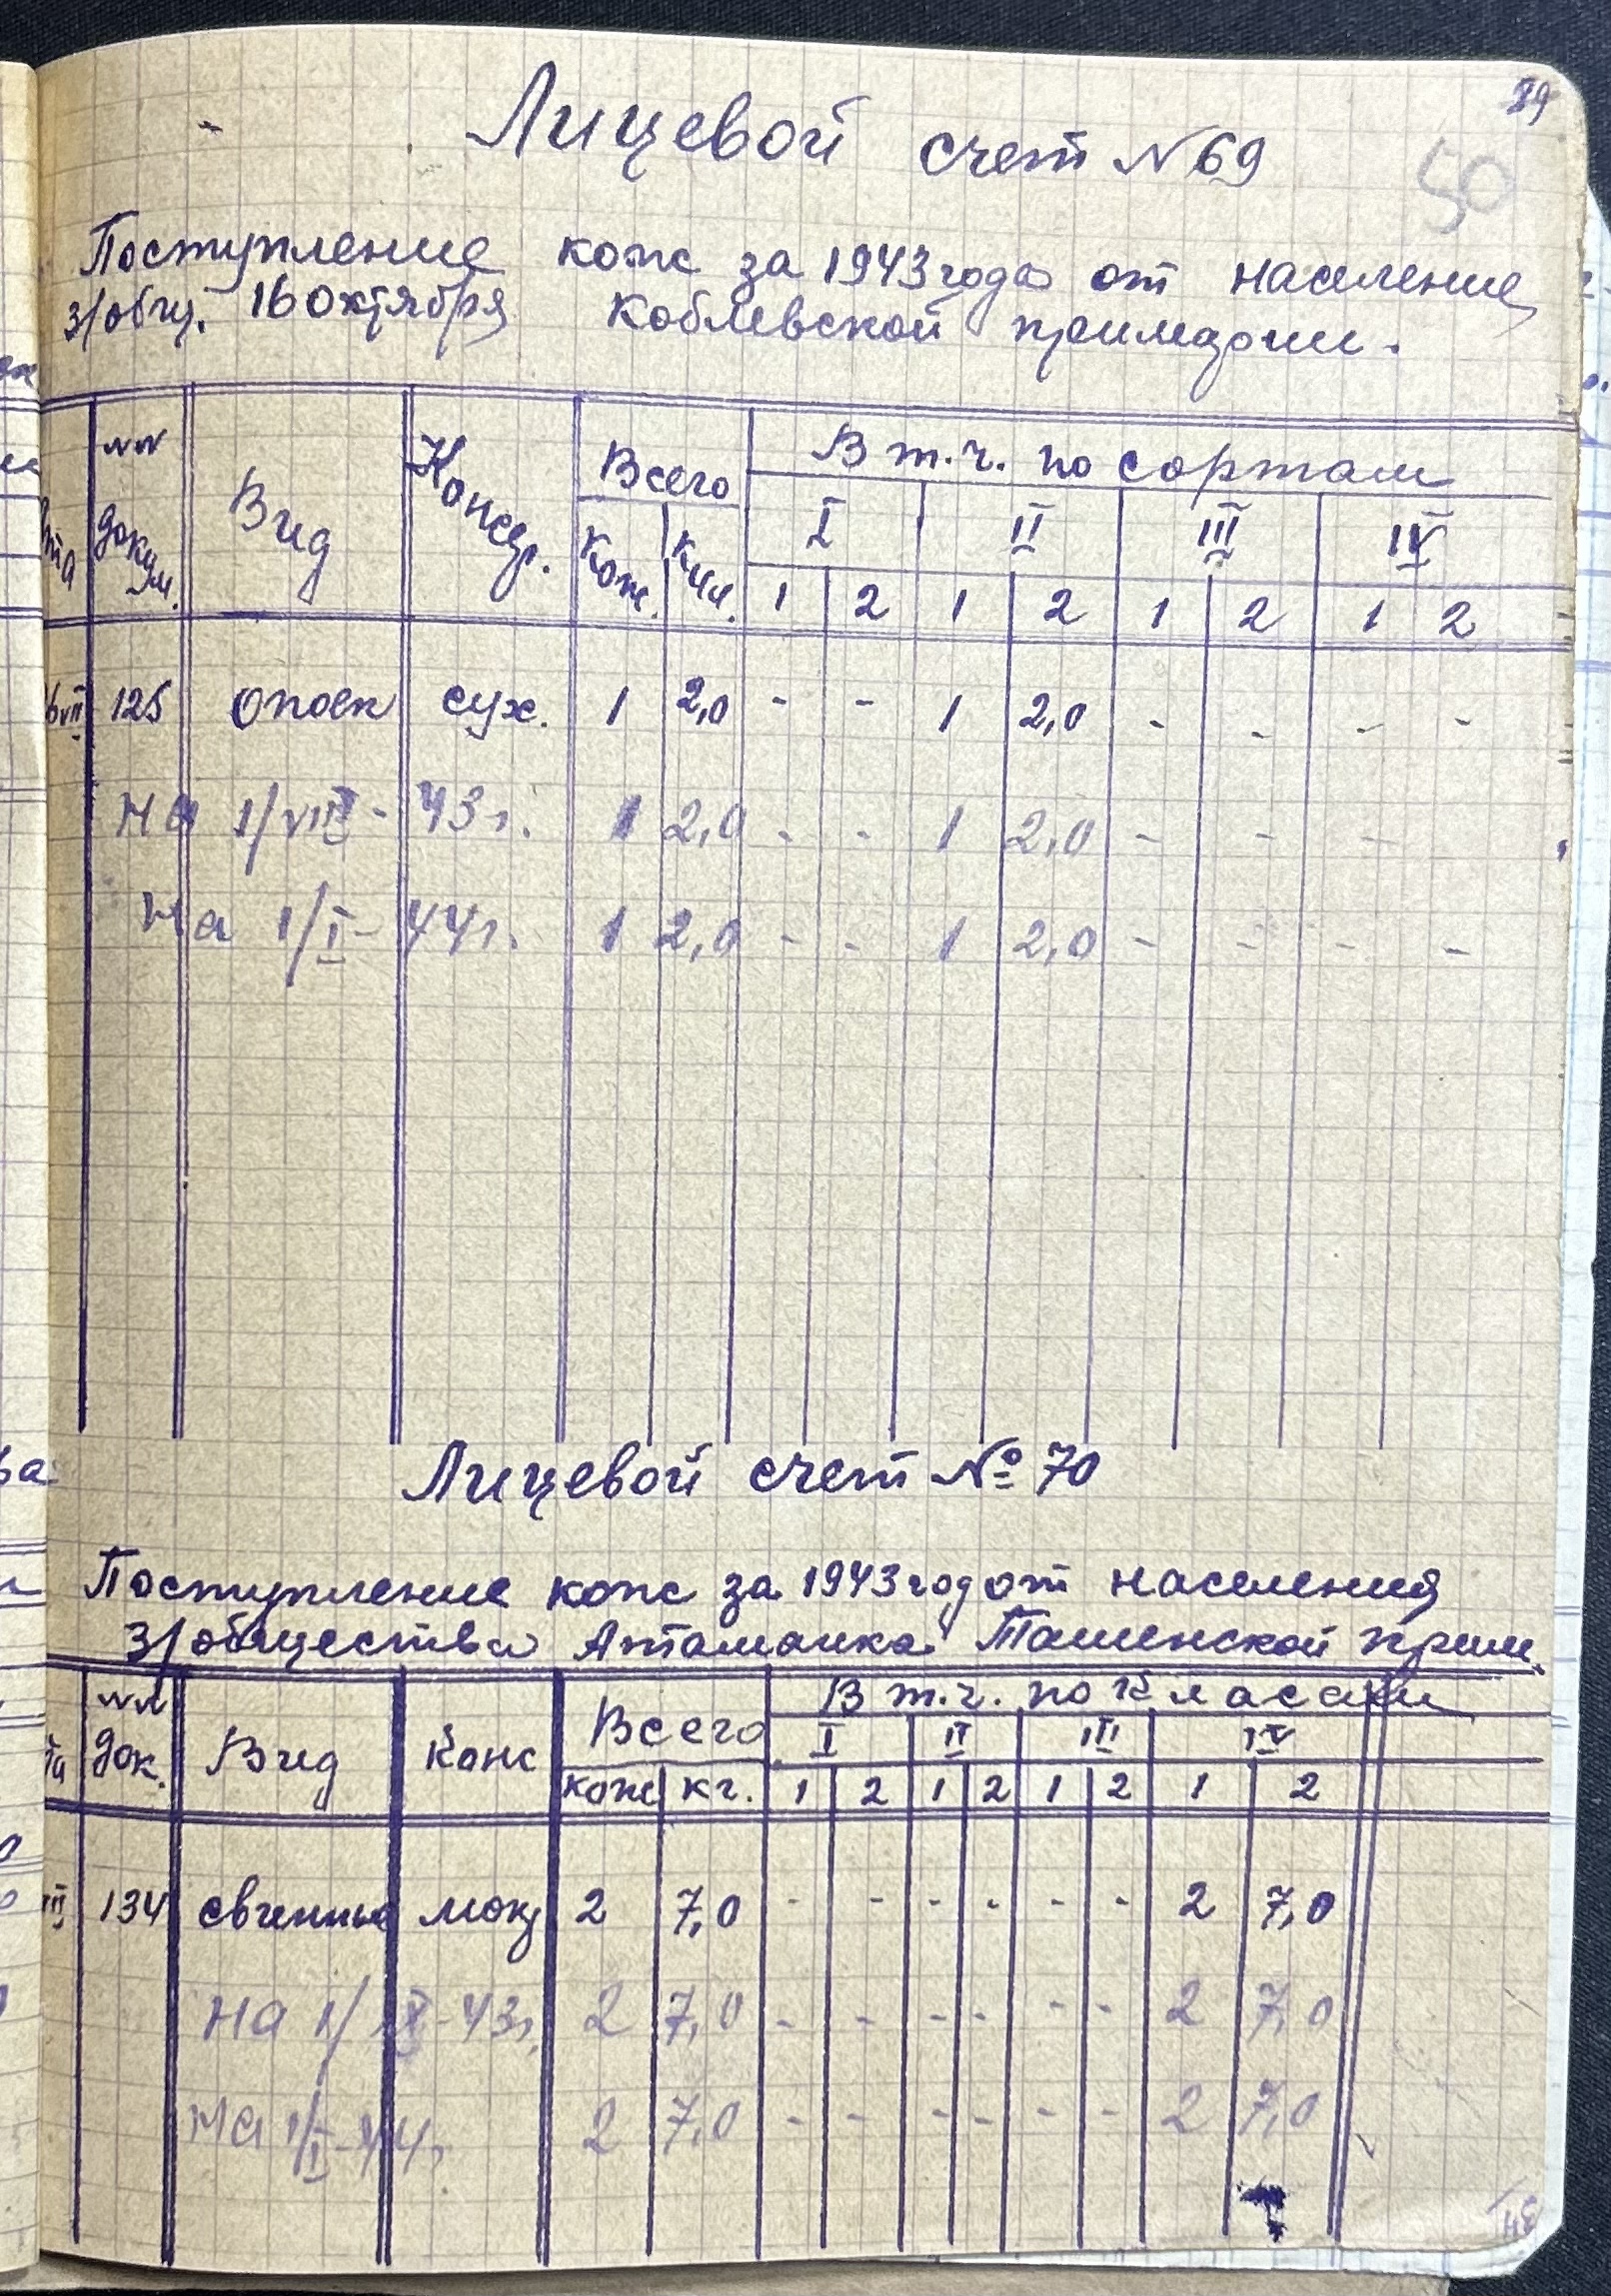 89
50
Лицевой счет № 69
Поступление кож за 1943 года от население
з/общ. 16 октября Коблевской примарии.
№№ докум. Вид Консер. Всего В т.ч. по сортам
I II III IV
кож. кил. 1 2 1 2 1 2 1 2
125 опоек сух. 1 2,0 - - 1 2,0 - - - -
На 1/VIII - 43 г. 1 2,0 - - 1 2,0 - - -
На 1/I - 44 г. 1 2,0 - - 1 2,0 - - - -
Лицевой счет № 70
Поступление кож за 1943 год от населения
з/общества Атаманка Ташенской прим.
№№ док. Вид Конс Всего В т.ч. по класам
I II III IV
кож кг. 1 2 1 2 1 2 1 2
134 свиные мок 2 7,0 - - - - - - 2 7,0
На 1/ - 43 г. 2 7,0 - - - - - - 2 7,0
На 1/I - 44 г. 2 7,0 - - - - - - 2 7,0